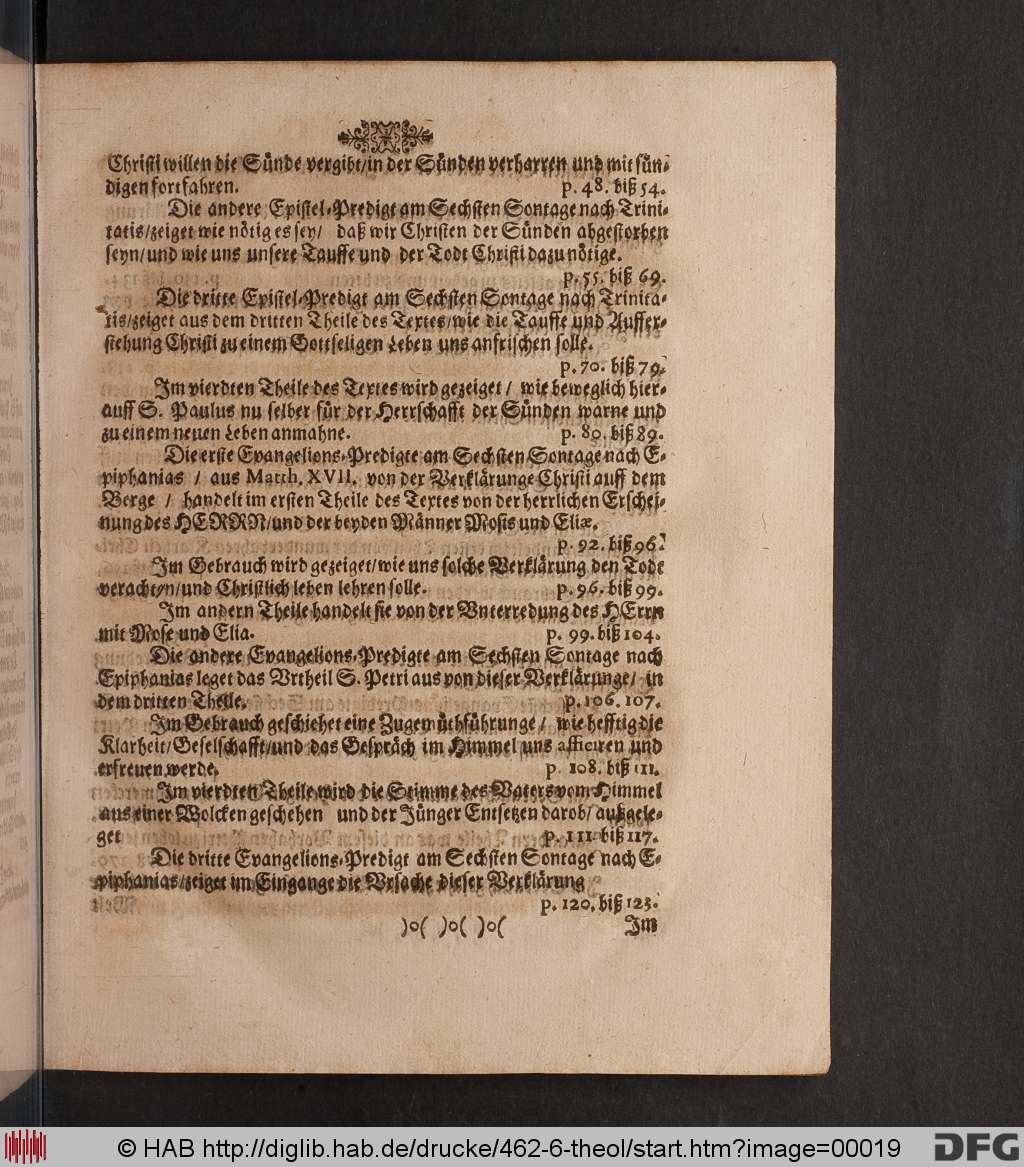 Christi willen die Sünde vergibt/in der Sünden verharren und mit sün-
digen fortfahren. p. 48. biß 54.
Die andere Epistel-Predigt am Sechsten Sontage nach Trini-
tatis/zeiget wie nötig es sey/ daß wir Christen der Sünden abgestorben
seyn/und wie uns unsere Tauffe und der Todt Christi dazu nötige.
p. 55. biß 69.
Die dritte Epistel-Predigt am Sechsten Sontage nach Trinita-
tis/zeiget aus dem dritten Theile des Textes/wie die Tauffe und Auffer-
stehung Christi zu einem Gottseligen Leben uns anfrischen solle.
p. 70. biß 79.
Im vierdten Theile des Textes wird gezeiget / wie beweglich hier-
auff S. Paulus nu selber für der Herrschafft der Sünden warne und
zu einem neuen Leben anmahne. p. 80. biß 89.
Die erste Evangelions-Predigte am Sechsten Sontage nach E-
piphanias / aus Matth. XVII. von der Verklärunge Christi auff dem
Berge / handelt im ersten Theile des Textes von der herrlichen Erschei-
nung des HERRN/und der beyden Männer Mosis und Eliæ.
p. 92. biß 96.
Im Gebrauch wird gezeiget/wie uns solche Verklärung den Tode
verachten/und Christlich leben lehren solle. p. 96. biß 99.
Im andern Theile handelt sie von der Vnterredung des HErrn
mit Mose und Elia. p. 99. biß 104.
Die andere Evangelions-Predigte am Sechsten Sontage nach
Epiphanias leget das Vrtheil S. Petri aus von dieser Verklärunge/ in
dem dritten Theile. p. 106. 107.
Im Gebrauch geschiehet eine Zugemüthführunge / wie hefftig die
Klarheit/Geselschafft/und das Gespräch im Himmel uns afficiren und
erfreuen werde. p. 108. biß 111.
Im vierdten Theile wird die Stimme des Vaters vom Himmel
aus einer Wolcken geschehen und der Jünger Entsetzen darob/ außgele-
get p. 111. biß 117.
Die dritte Evangelions-Predigt am Sechsten Sontage nach E-
piphanias/zeiget im Eingange die Vrsache dieser Verklärung
p. 120. biß 123.
)o( )o( )o( Im
© HAB http://diglib.hab.de/drucke/462-6-theol/start.htm?image=00019
DFG